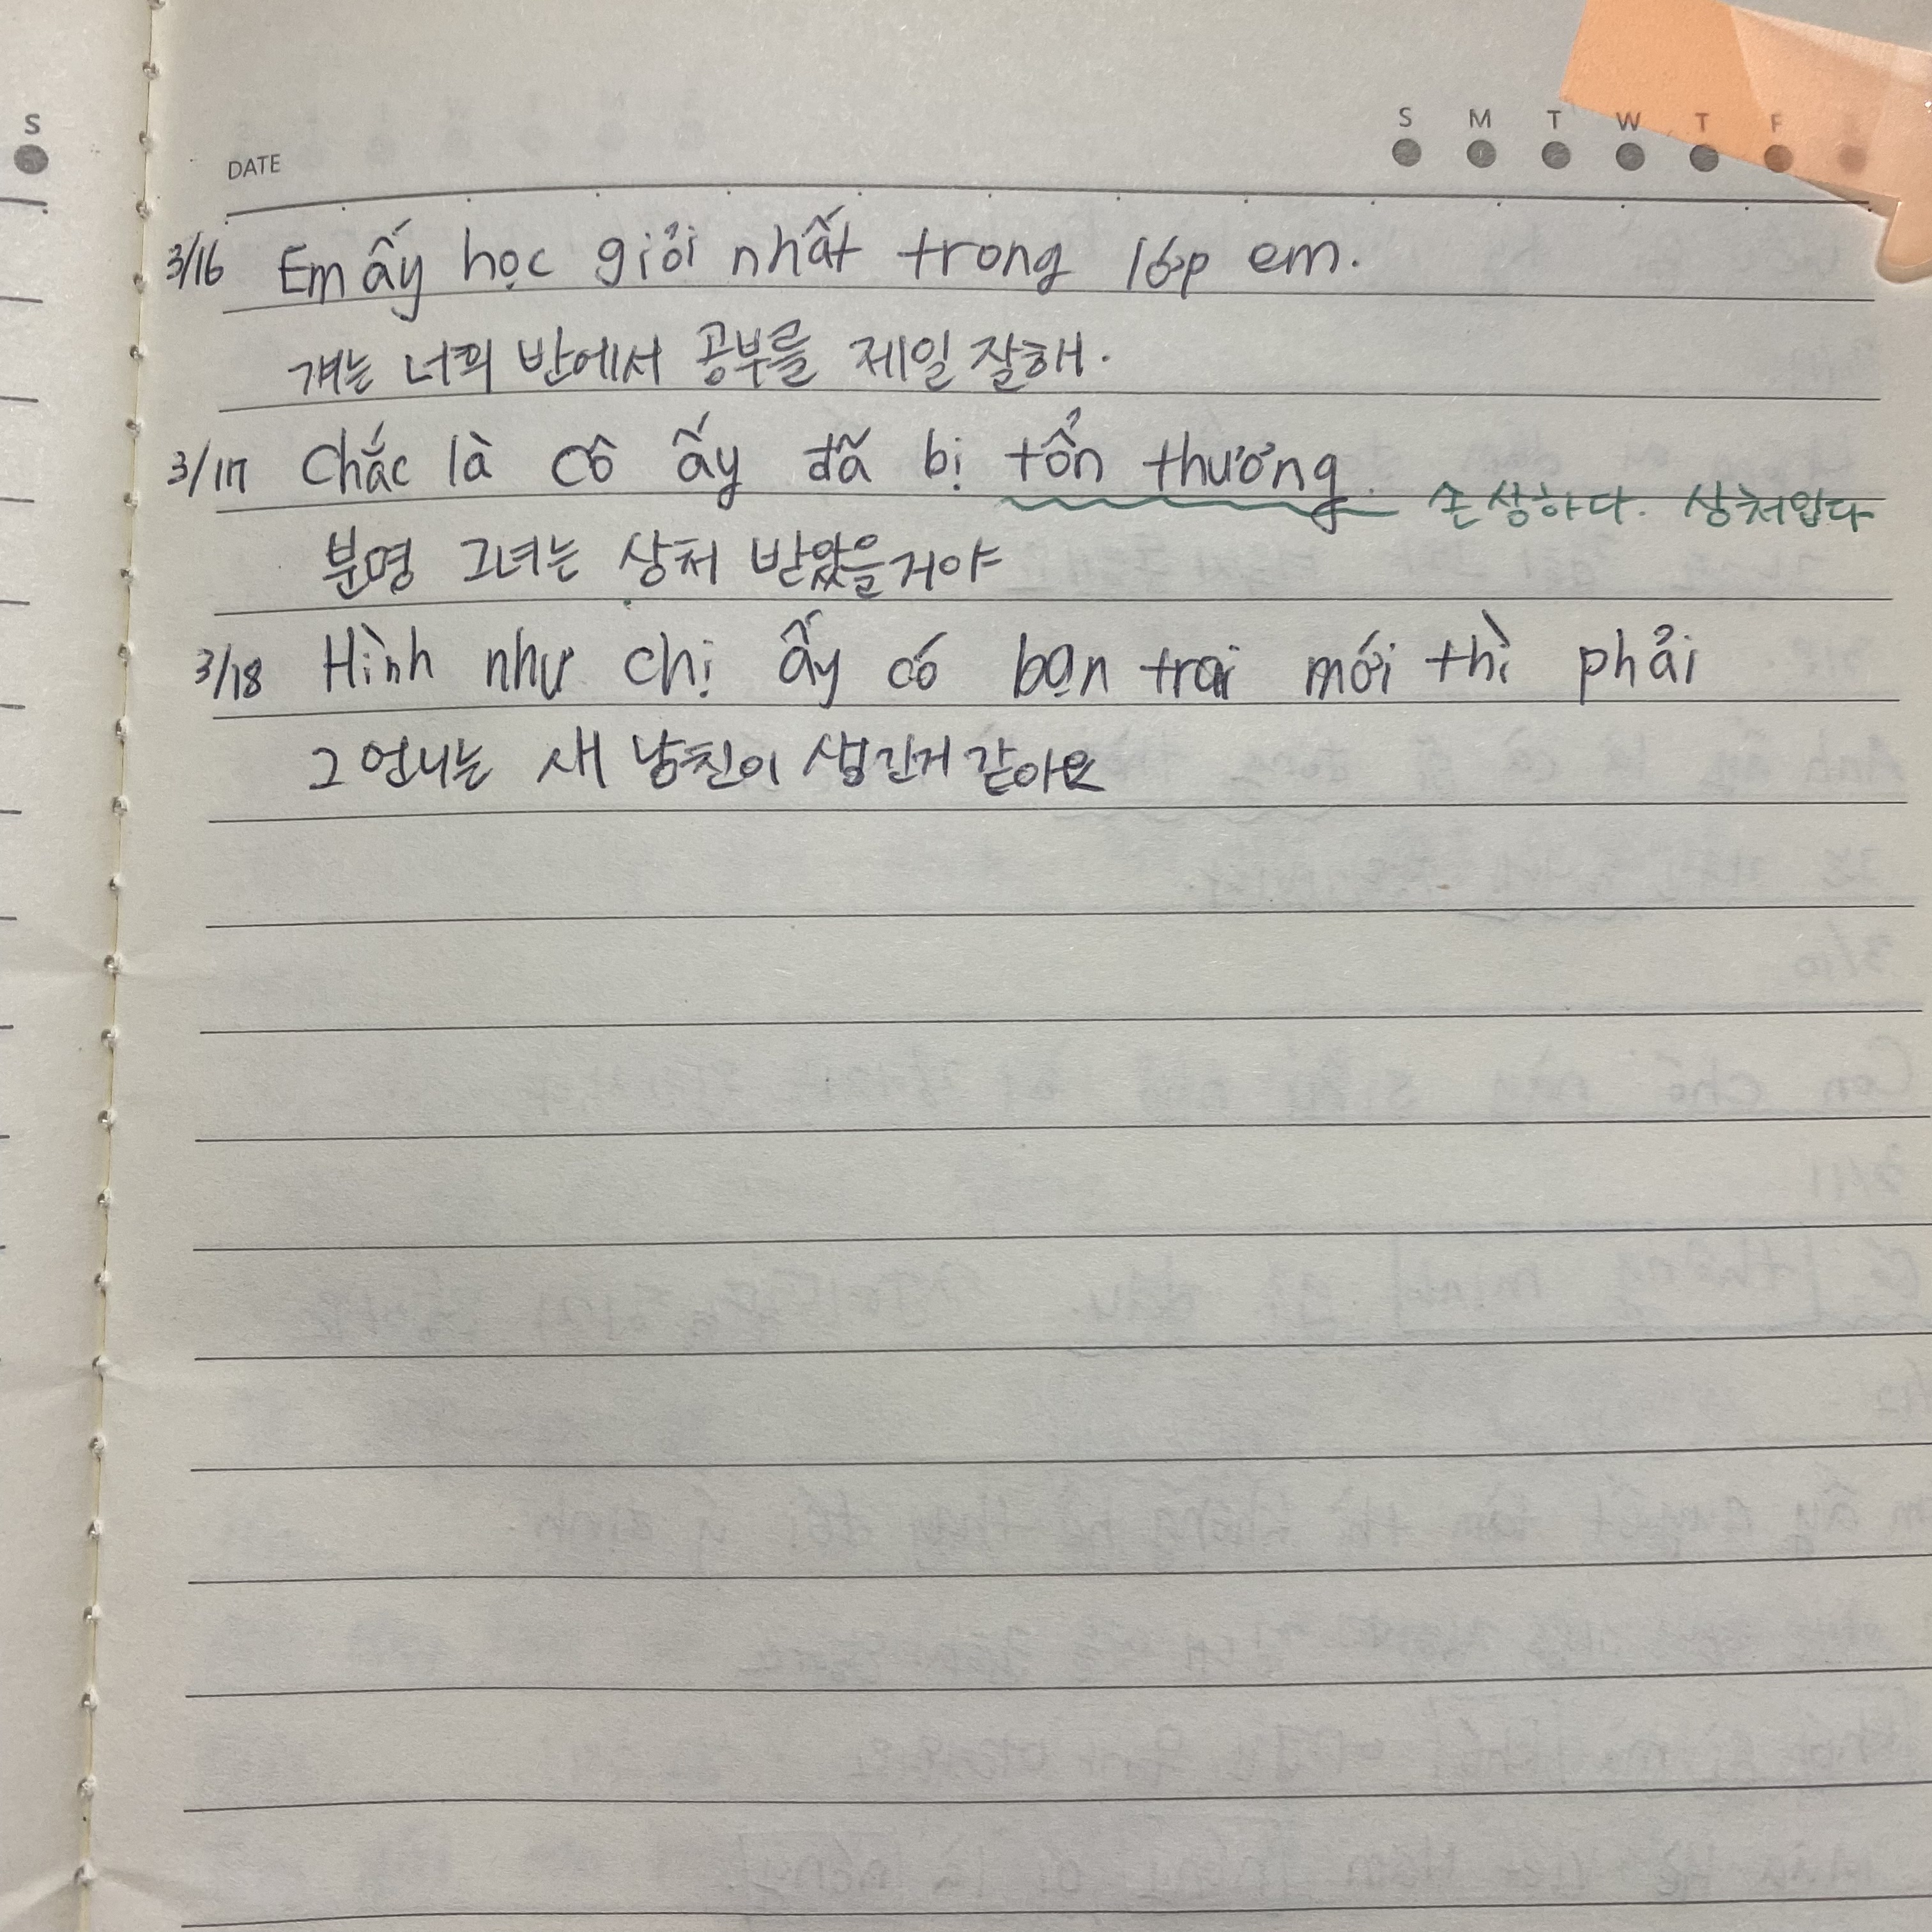 S
DATE
S M T W T F
3/16 Em ấy học giỏi nhất trong lớp em.
걔는 너희 반에서 공부를 제일 잘해.
3/17 Chắc là cô ấy đã bị tổn thương.
손상하다. 상처입다
분명 그녀는 상처 받았을거야
3/18 Hình như chị ấy có bạn trai mới thì phải
그 언니는 새 남친이 생긴거 같아요